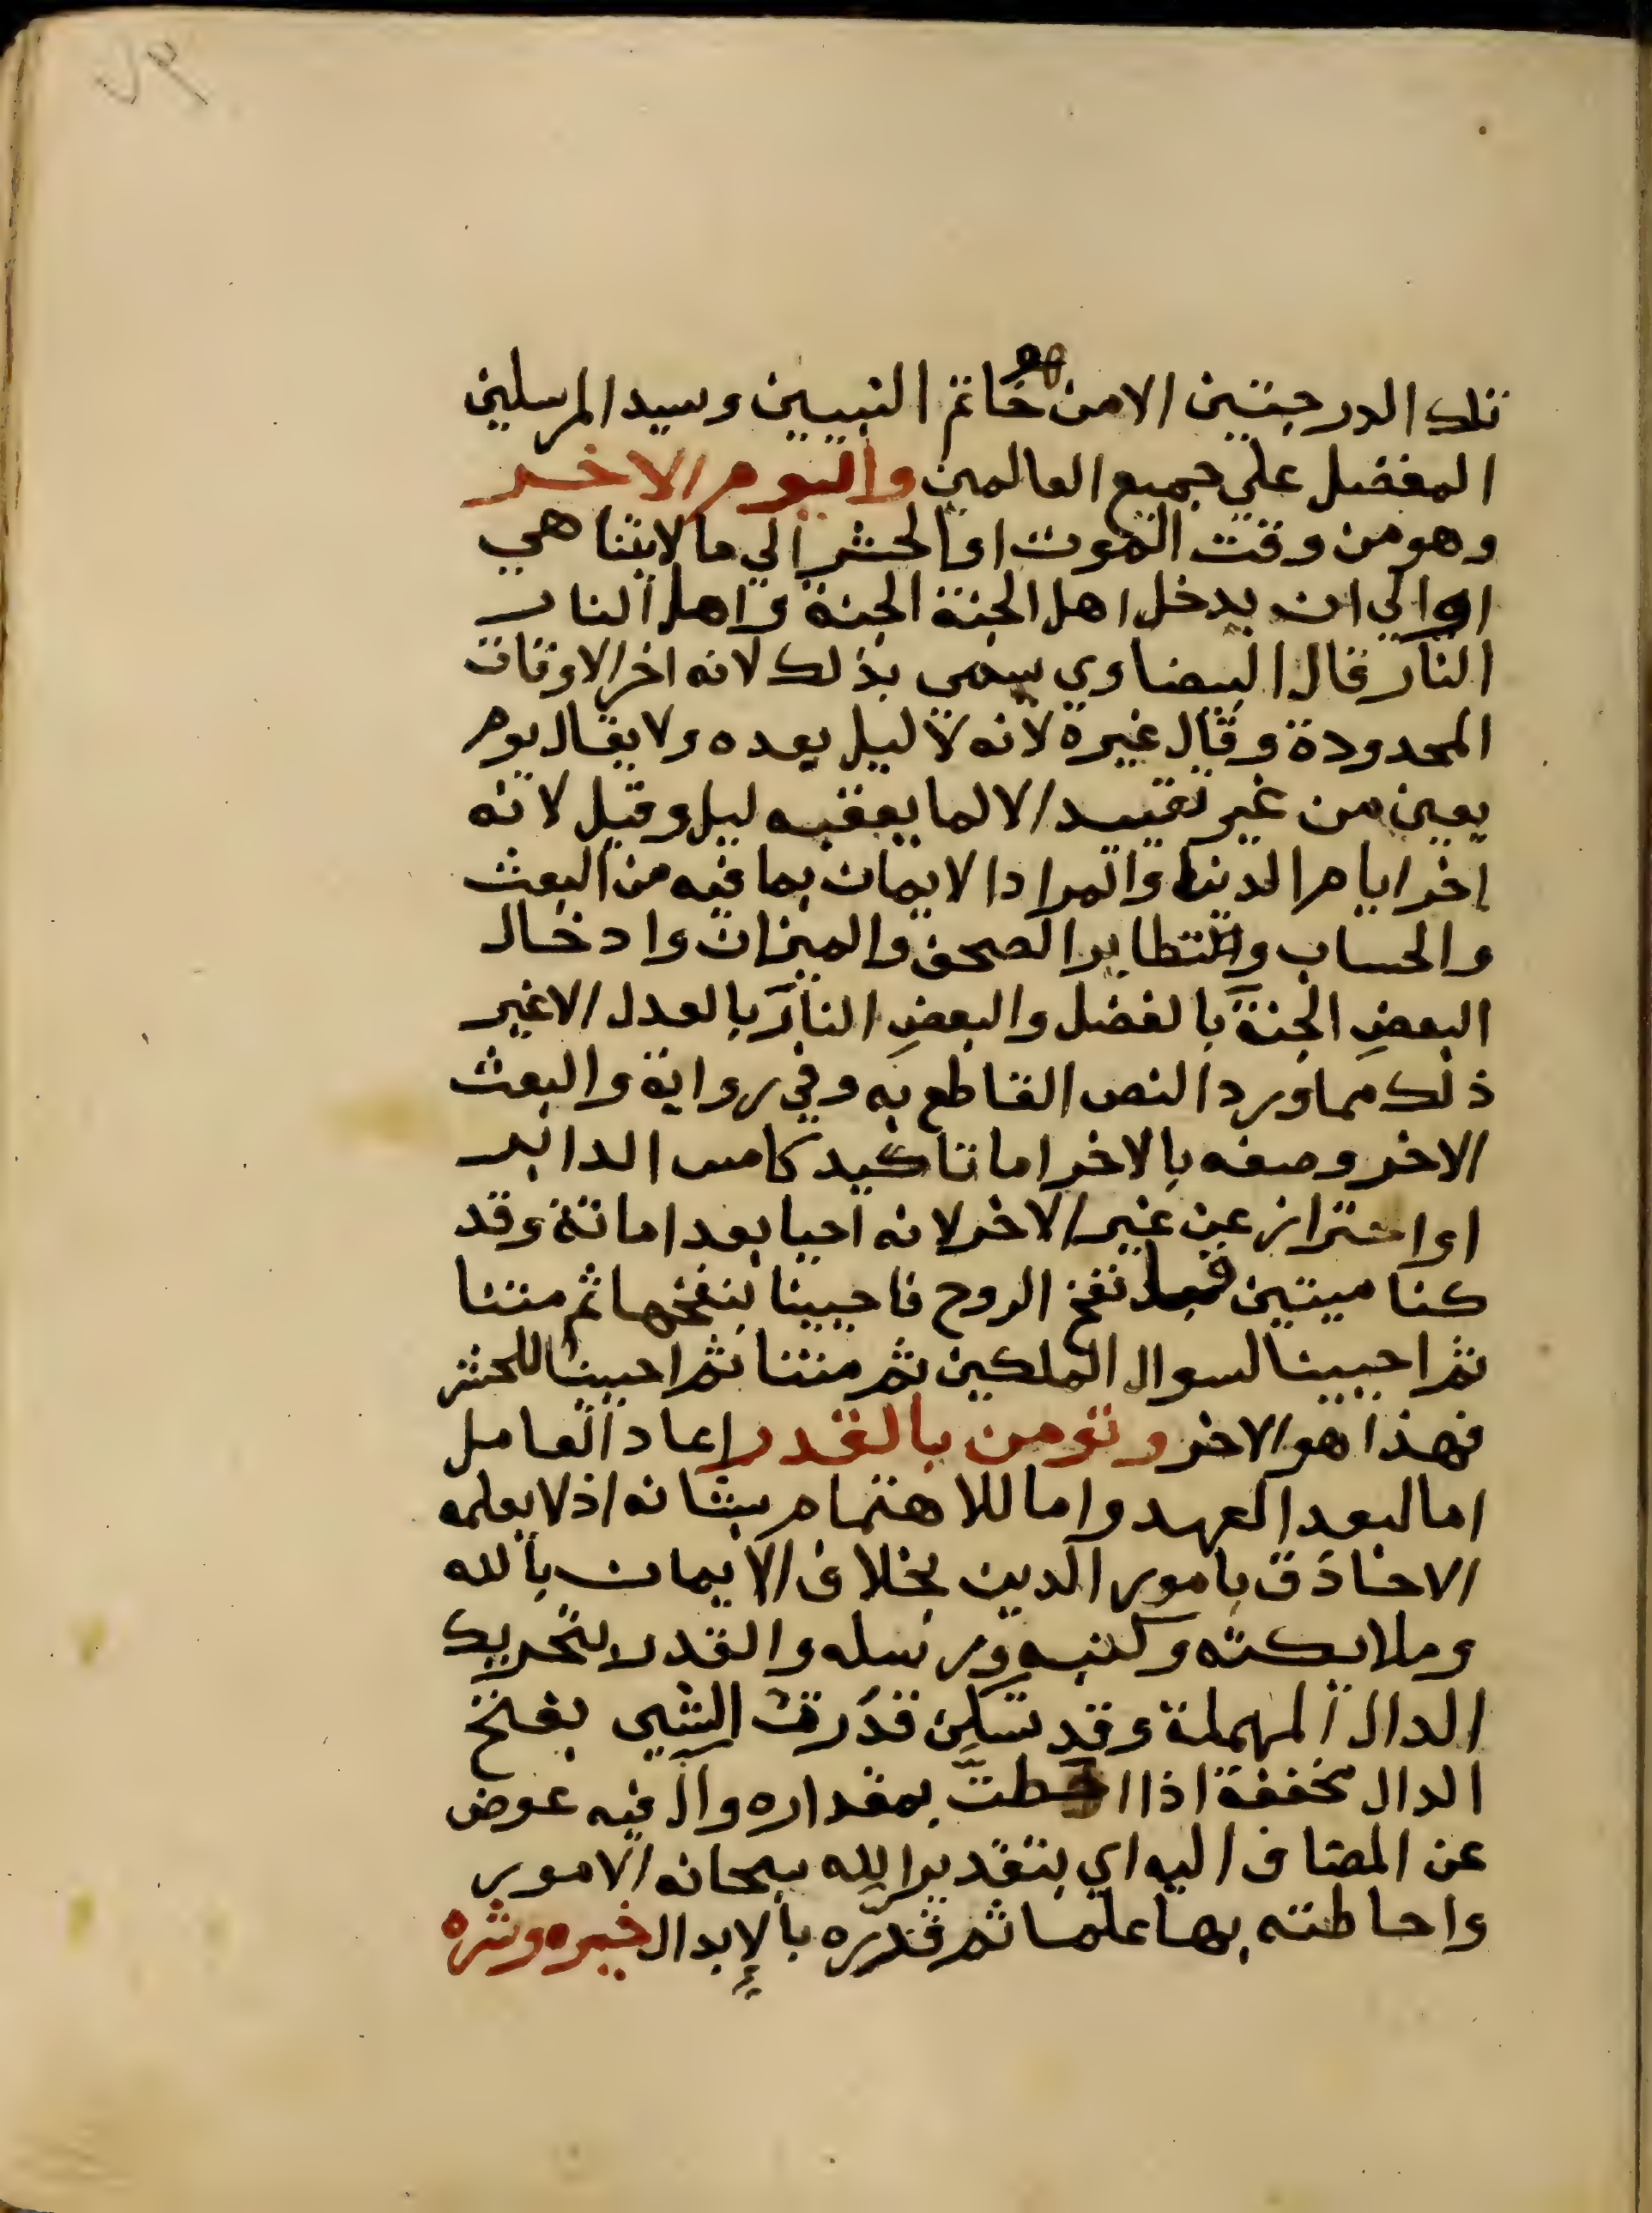 تلك الدرجتين الا من هو خاتم النبيين وسيد المرسلين
المفضل علي جميع العالمين واليوم الاخر
وهو من وقت الموت او الحشر الي ما لا يتناهي
او الي ان يدخل اهل الجنة الجنة واهل النار
النار قال البيضاوي سمي بذلك لانه اخر الاوقات
المحدودة وقال غيره لانه لا ليل بعده ولا يقال يوم
يعين من غير تقييد الا لما يعقبه ليل وقيل لانه
اخر ايام الدنيا والمراد الايمان بما فيه من البعث
والحساب والتطاير الصحف والميزان وادخال
البعضِ الجنةَ بالفضل والبعضِ النارَ بالعدل الا غير
ذلك مما ورد النص القاطع به وفي رواية والبعث
الاخر وصفه بالاخر اما تاكيد كامس الدابر
او احتراز عن غير الاخر لانه احيا بعد اماتة وقد
كنا ميتين قبل نفخ الروح فاحيينا بنفخها ثم متنا
ثم احيينا لسوال الملكين ثم متنا ثم احيينا للحشر
فهذا هو الاخر وتومن بالقدر اعاد العامل
اما لبعد العهد واما للاهتمام بشانه اذ لا يعلمه
الا حاذق بامور الدين بخلاف الايمان بالله
وملايكته وكتبه ورسله والقدر بتحريك
الدال المهملة وقد تسكن قدَرت الشي بفتح
الدال مخففة اذا احطتَّ بمقداره وال فيه عوض
عن المضاف اليه اي بتقدير الله سبحانه الامور
واحاطته بها علما ثم قدّره بالإبدال خيره وشره